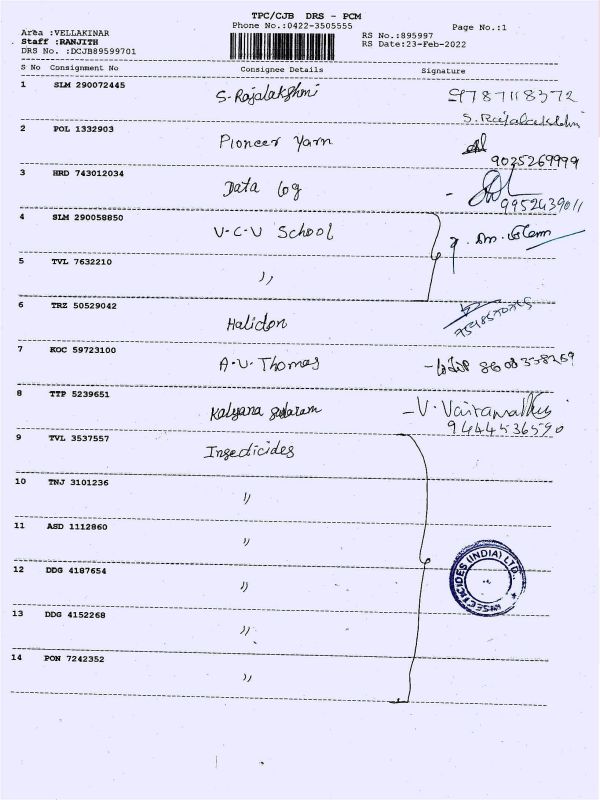 TPC/CJB DRS - PCM
Phone No.:0422-3505555
Page No.:1
Area :VELLAKINAR
Staff :RANJITH
DRS No. :DCJB89599701
RS No.:895997
RS Date:23-Feb-2022
S No Consignment No Consignee Details Signature
1 SLM 290072445 S. Rajalakshmi 9787118372
S. Rajalakshmi
2 POL 1332903 Pioneer Yarn
9025269999
3 HRD 743012034 Data log
9952439011
4 SLM 290058850 V-C-V School
5 TVL 7632210 "
6 TRZ 50529042 Halidon
7 KOC 59723100 A.V. Thomas 8608338259
8 TTP 5239651 Kalyana Sundaram - V. Vairamuthu
9444536590
9 TVL 3537557 Insecticides
10 TNJ 3101236 "
11 ASD 1112860 "
12 DDG 4187654 "
13 DDG 4152268 "
14 PON 7242352 "
INSECTICIDES (INDIA) LTD.